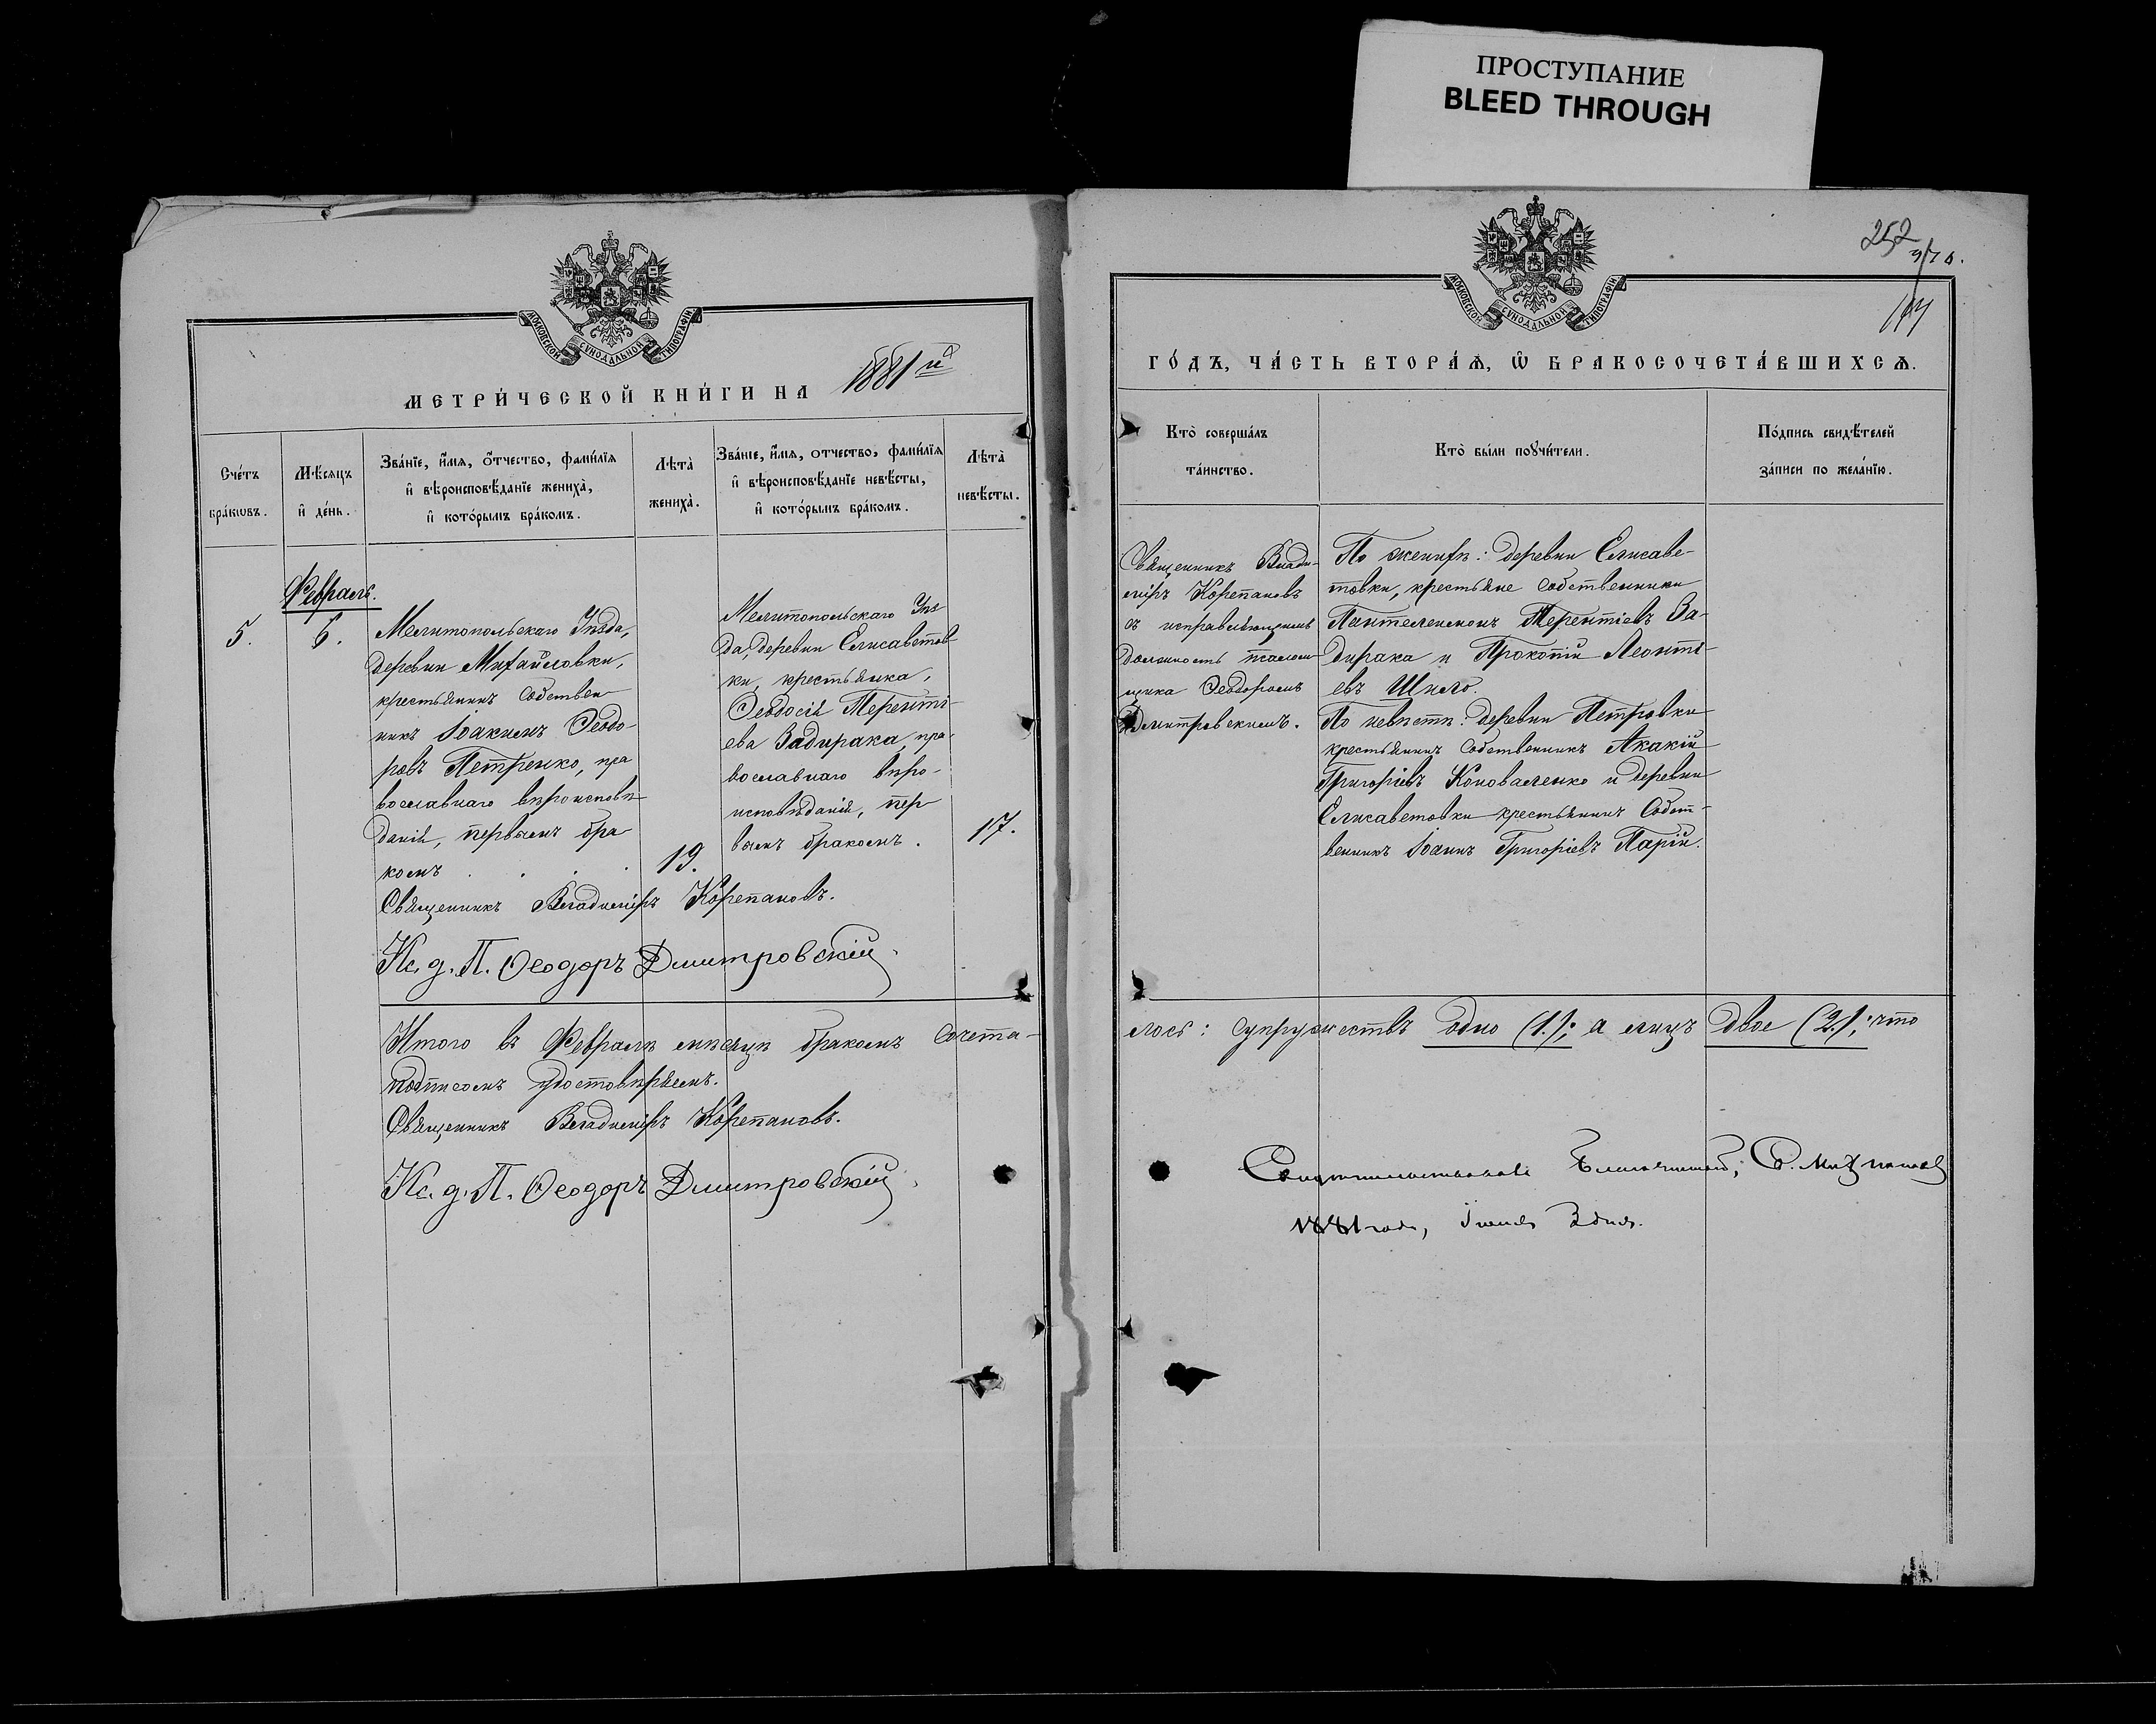 ПРОСТУПАНИЕ
BLEED THROUGH
МОСКОВСКОЙ СѴНОДАЛЬНОЙ ТИПОГРАФІИ
МЕТРИ́ЧЕСКОЙ КНИ́ГИ НА 1881й
Сче́тъ бра́кѡвъ.
Мѣ́сяцъ и҆ де́нь.
Зва́нїе, и҆́мя, ѻ҆́тчество, фами́лїя
и҆ вѣроисповѣ́данїе жениха̀,
и҆ кото́рымъ бра́комъ.
Лѣта̀ жениха̀.
Зва́нїе, и҆́мя, отчество, фами́лїя
и҆ вѣроисповѣ́данїе невѣ́сты,
и҆ кото́рымъ бра́комъ.
Лѣта̀ невѣ́сты.
Февраль.
5.
6.
Мелитопольскаго Уѣзда,
деревни Михайловки,
крестьянинъ собствен
никъ Іоакимъ Ѳеодо-
ровъ Петренко, пра
вославнаго вѣроисповѣ
данія, первымъ бра
комъ . . . .
19.
Мелитопольскаго Уѣз
да, деревни Елисаветов
ки, крестьянка,
Ѳеодосія Теренті-
ева Задирака, пра-
вославнаго вѣро-
исповѣданія, пер
вымъ бракомъ .
17.
Священникъ Владиміръ Корепановъ.
Ис. д. П. Ѳеодоръ Дмитровскій
Итого въ Февралѣ мѣсяцѣ бракомъ сочета-
подписомъ удостовѣряемъ.
Священникъ Владиміръ Корепановъ.
Ис. д. П. Ѳеодоръ Дмитровскій
МОСКОВСКОЙ СѴНОДАЛЬНОЙ ТИПОГРАФІИ
252
ГО́ДЪ, ЧА́СТЬ ВТОРА́Я, Ѡ҆ БРАКОСОЧЕТА́ВШИХСЯ.
Кто̀ соверша́лъ
та́инство.
Кто̀ бы́ли поꙋчи́тели.
По́дпись свидѣ́телей
за́писи по жела́нїю.
Священникъ Влади-
міръ Корепановъ
съ исправляющимъ
должность псалом-
щика Ѳеодоромъ
Дмитровскимъ.
По женихѣ: деревни Елисаве-
товки, крестьяне собственники
Пантелеимонъ Терентіевъ За-
дирака и Прокопій Леонті-
евъ Шило.
По невѣстѣ: деревни Петровки
крестьянинъ собственникъ Акакій
Григоріевъ Коноваленко и деревни
Елисаветовки крестьянинъ Собст-
венникъ Іоаннъ Григоріевъ Парій.
лось: супружествъ одно (1.); а лицъ двое (2.); что
Свидѣтельствовалъ Благочинный, С.
1881 года, Іюня 3 дня.